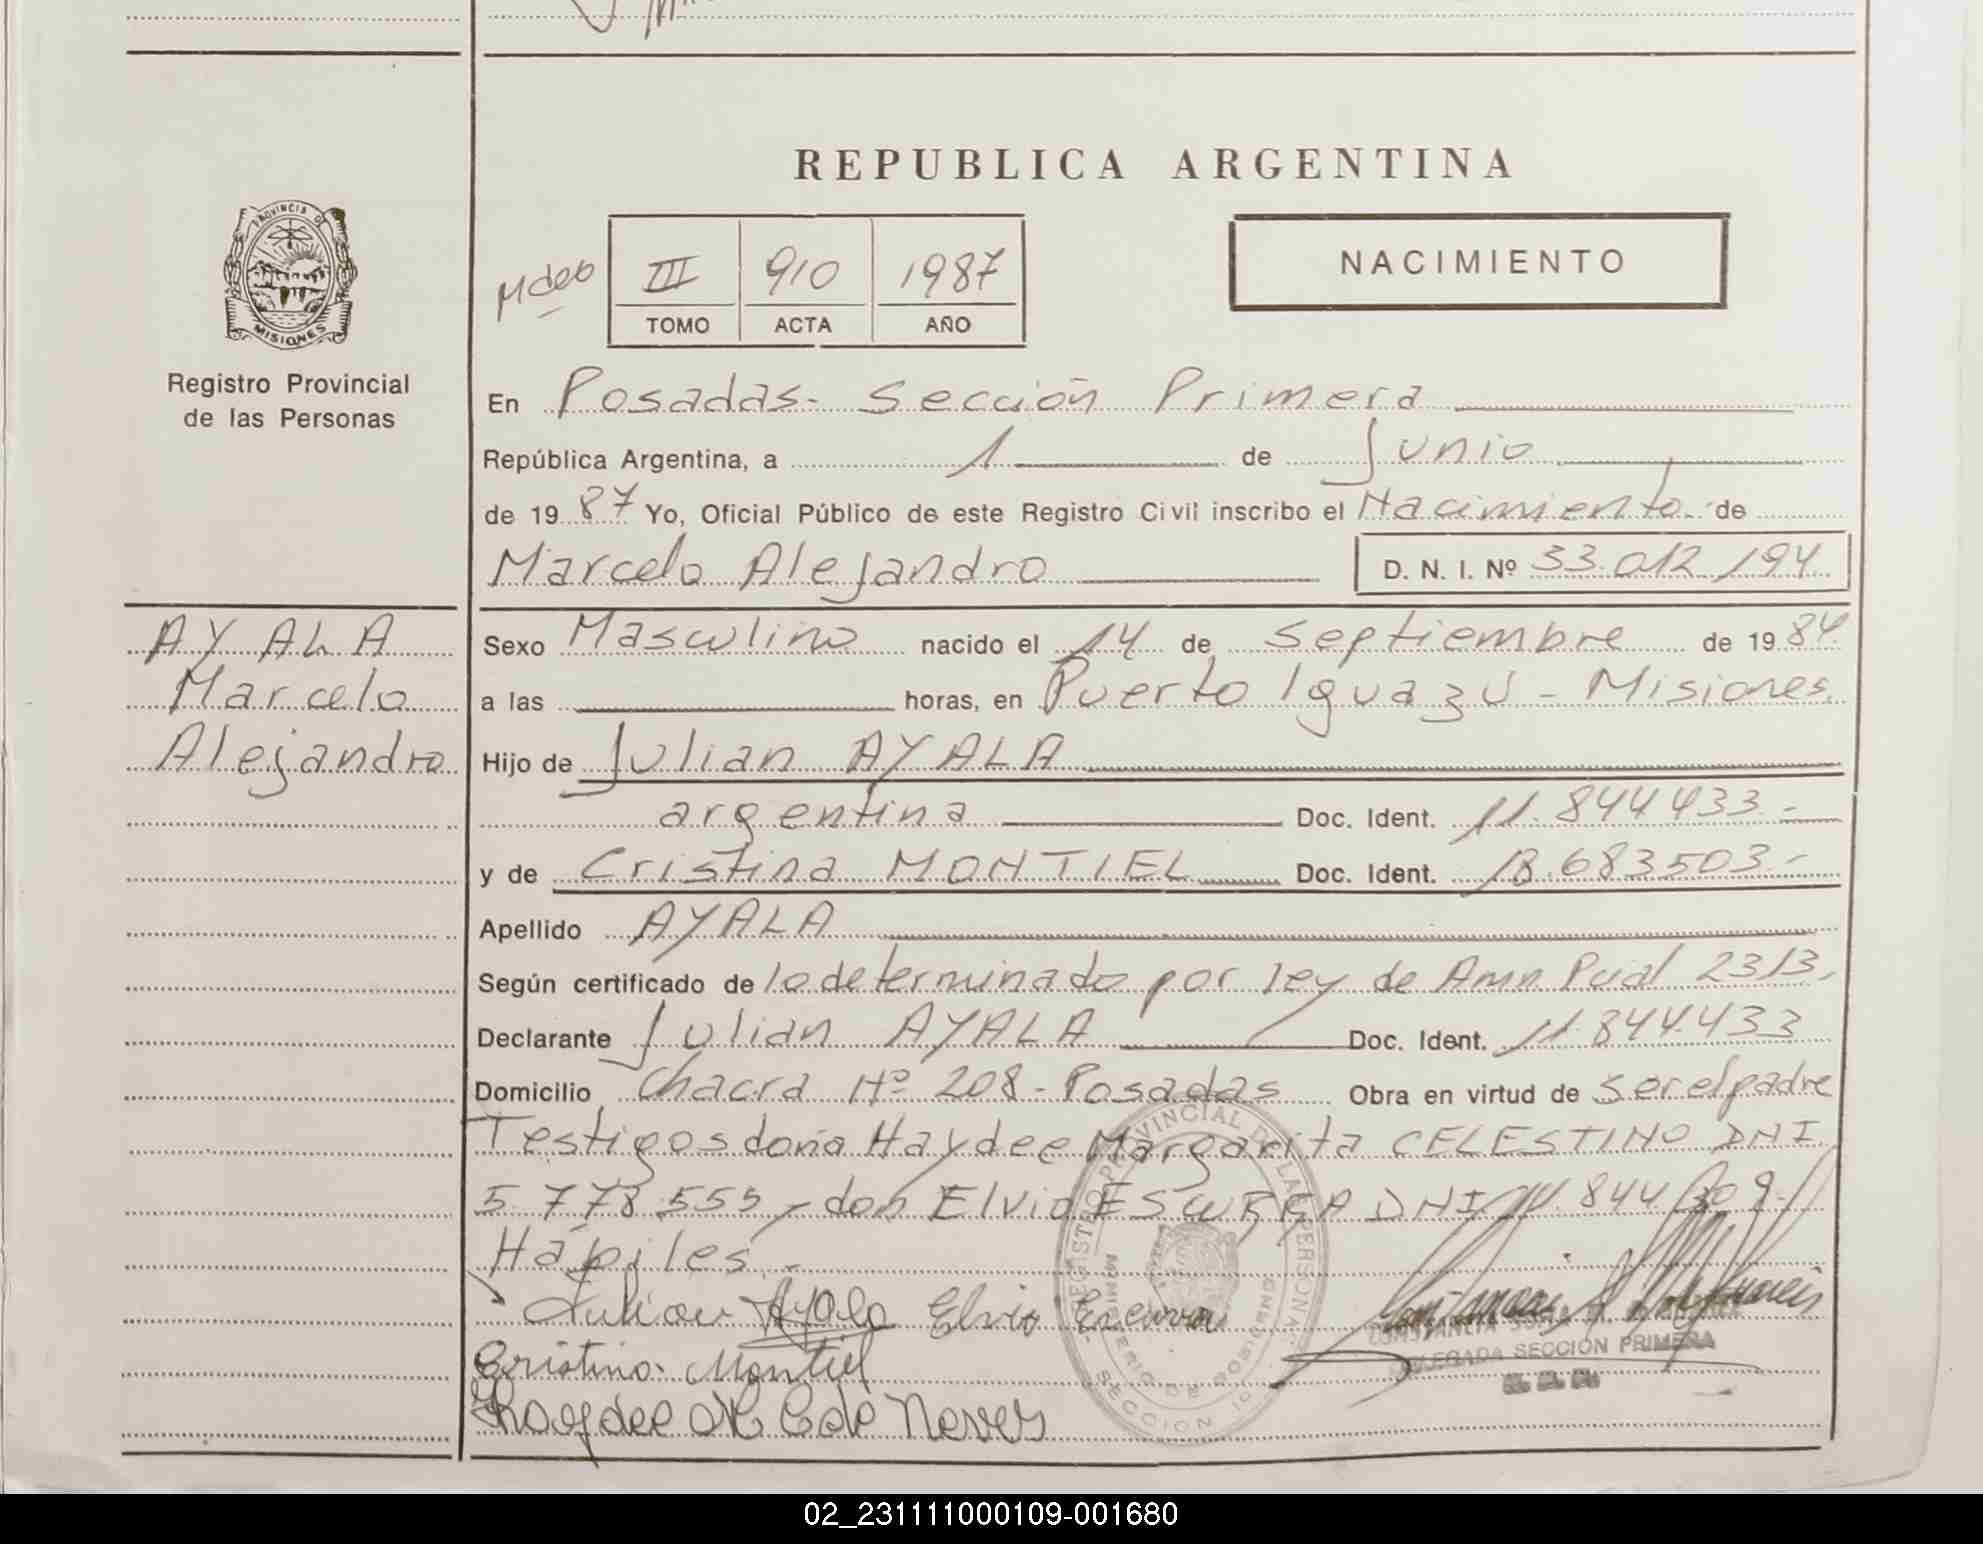 REPUBLICA ARGENTINA
PROVINCIA DE
MISIONES
Registro Provincial
de las Personas
III 910 1987
TOMO ACTA AÑO
NACIMIENTO
En Posadas- Sección Primera
República Argentina, a 1 de Junio
de 1987 Yo, Oficial Público de este Registro Civil inscribo el Nacimiento de
Marcelo Alejandro D. N. I. Nº 33.012.194
AYALA
Marcelo
Alejandro
Sexo Masculino nacido el 14 de septiembre de 1984
a las horas, en Puerto Iguazú - Misiones.
Hijo de Julian AYALA
argentina Doc. Ident. 11.844433.-
y de Cristina MONTIEL Doc. Ident. 18.683503.-
Apellido AYALA
Según certificado de lo determinado por ley de 2313,
Declarante Julian AYALA Doc. Ident. 11.844.433
Domicilio Chacra Nº 208 - Posadas Obra en virtud de ser el padre
Testigos doña Haydee Margarita CELESTINO DNI
5.778.555, don Elvio DNI 844.
Hábiles.-
Julian Ayala Elvio
Cristina Montiel
Haydee M C de Neves
REGISTRO PROVINCIAL DE LAS PERSONAS
MINISTERIO DE GOBIERNO
SECCION 1º
CONSTANCIA
DELEGADA SECCIÓN PRIMERA
02_231111000109-001680